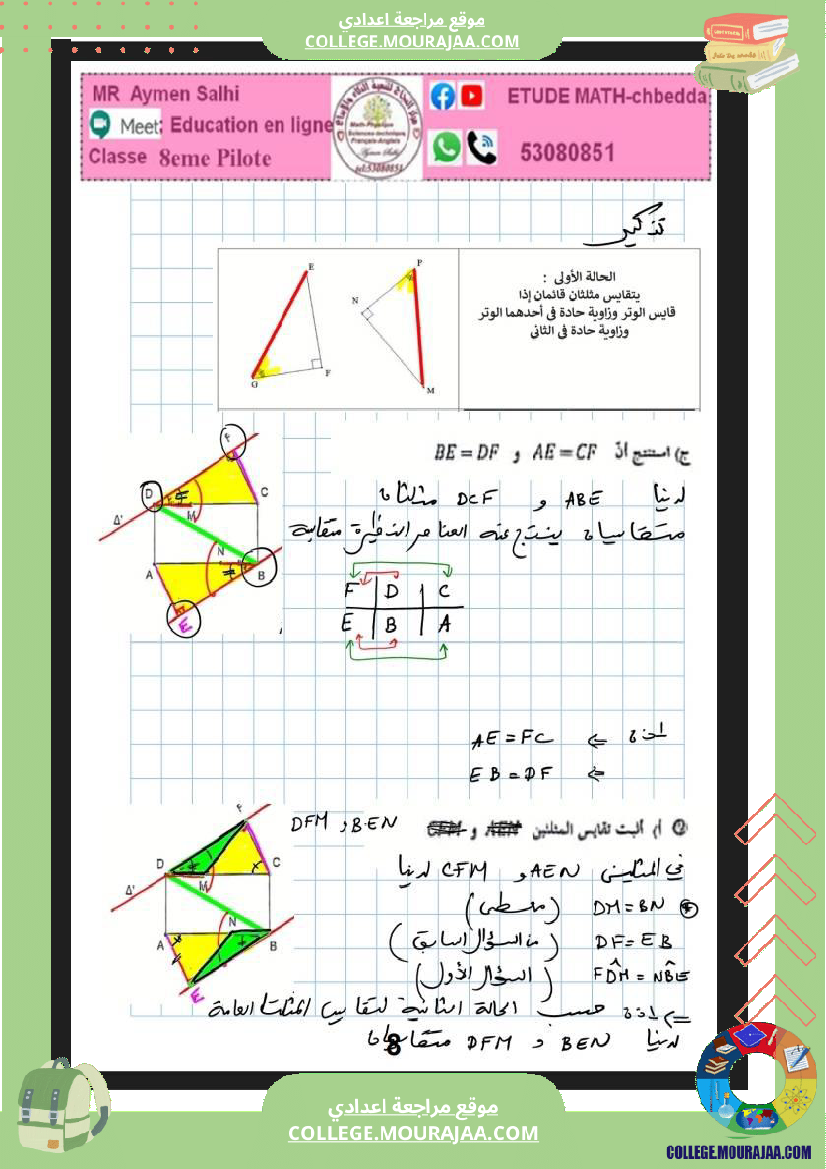 موقع مراجعة اعدادي
COLLEGE.MOURAJAA.COM
MR Aymen Salhi
Meet: Education en ligne
Classe 8eme Pilote
ETUDE MATH-chbedda
53080851
تذكير
الحالة الأولى :
يتقايس مثلثان قائمان إذا
قايس الوتر وزاوية حادة في أحدهما الوتر
وزاوية حادة في الثاني
E
G
F
P
N
M
ج) استنتج أنّ AE = CF و BE = DF
لدينا ABE و DCF مثلثان
متقايسان ينتج عنه العناصر النظيرة متقايسة
F D C
E B A
F
D
C
Δ'
M
N
A
B
E
إذن => AE = FC
=> EB = DF
② أ) أثبت تقايس المثلثين AEN و CFM BEN و DFM
F
D
C
Δ'
M
N
A
B
E
في المثلثين AEN و CFM لدينا
DM = BN (معطى)
DF = EB (من السؤال السابق)
FD̂M = NB̂E (السؤال الأول)
=> إذن حسب الحالة الثانية لتقايس المثلثات العامة
لدينا BEN و DFM متقايسان
8
موقع مراجعة اعدادي
COLLEGE.MOURAJAA.COM
COLLEGE.MOURAJAA.COM